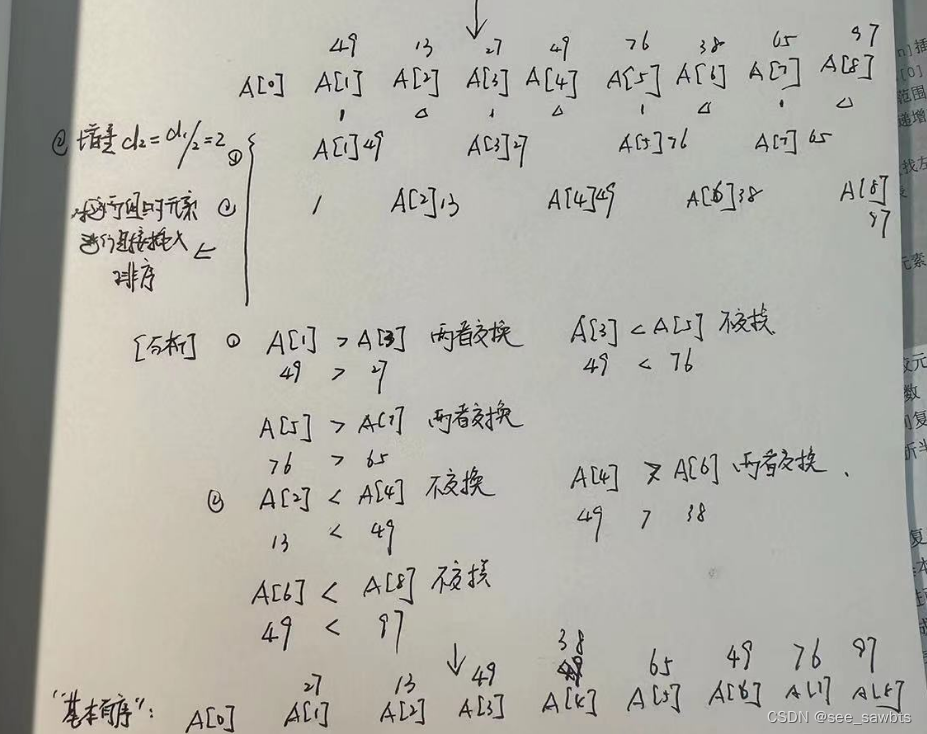 49 13 27 49 76 38 65 97
A[0] A[1] A[2] A[3] A[4] A[5] A[6] A[7] A[8]
② 增量 d2=d1/2=2
① A[1]49 A[3]27 A[5]76 A[7] 65
② A[2]13 A[4]49 A[6]38 A[8]
97
元素
进行直接插入
排序
[分析] ① A[1] > A[3] 两者交换 A[3] < A[5] 不交换
49 > 27 49 < 76
A[5] > A[7] 两者交换
76 > 65
② A[2] < A[4] 不交换 A[4] > A[6] 两者交换.
13 < 49 49 > 38
A[6] < A[8] 不交换
49 < 97
27 13 49 38 65 49 76 97
"基本有序": A[0] A[1] A[2] A[3] A[4] A[5] A[6] A[7] A[8]
CSDN @see_sawbts